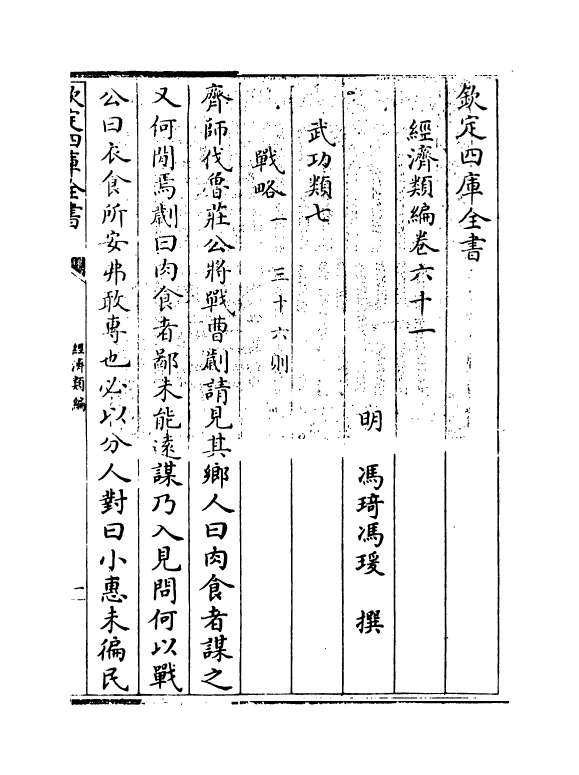 欽定四庫全書
經濟類編卷六十一
明 馮琦馮瑗 撰
武功類七
戰略一 三十六則
齊師伐魯莊公將戰曹劌請見其鄉人曰肉食者謀之
又何間焉劌曰肉食者鄙未能遠謀乃入見問何以戰
公曰衣食所安弗敢專也必以分人對曰小惠未徧民
欽定四庫全書
經濟類編